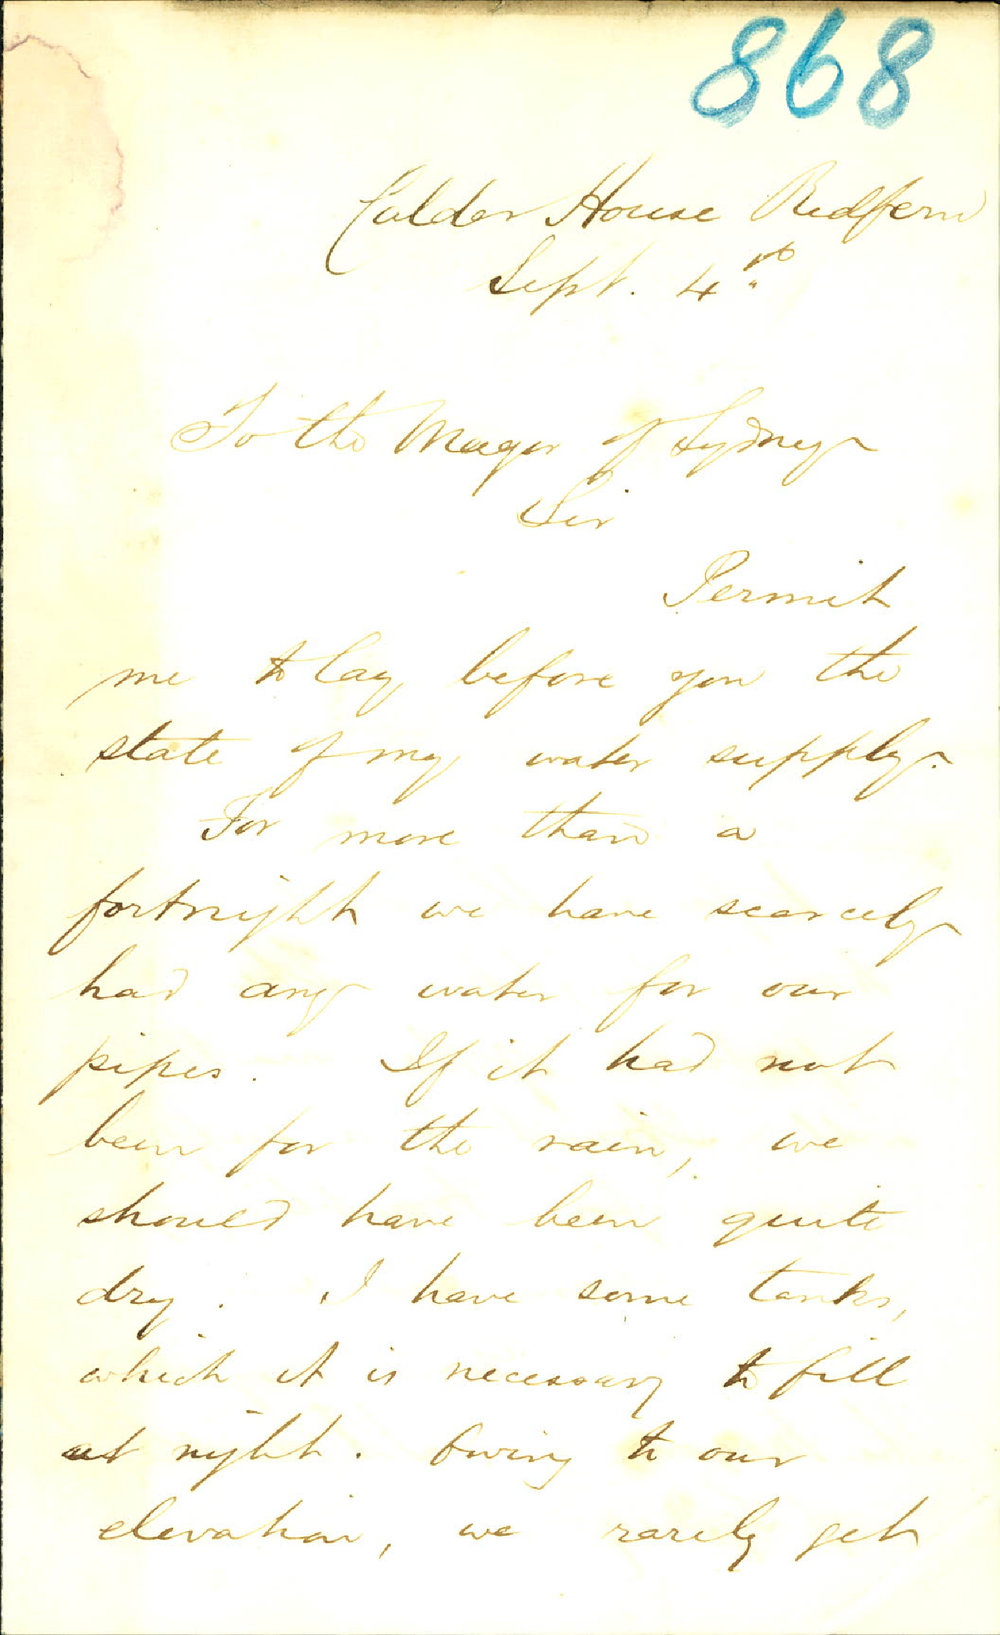 868
Calder House Redfern
Sept. 4th
To the Mayor of Sydney
Sir
Permit
me to lay before you the
state of my water supply.
For more than a
fortnight we have scarcely
had any water for our
pipes. If it had not
been for the rain, we
should have been quite
dry. I have some tanks,
which it is necessary to fill
at night. Owing to our
elevation, we rarely get